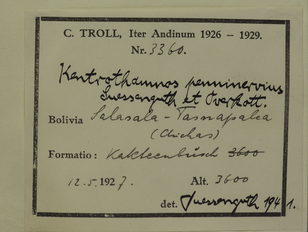 C. TROLL, Iter Andinum 1926 - 1929.
Nr. 3360.
Kentrothamnos penninervius
Suessenguth et Overkott.
Bolivia Salasala - Tassapalca
(Chichas)
Formatio: Kakteenbusch 3600
12.5.1927. Alt. 3600
det. Suessenguth 1941.